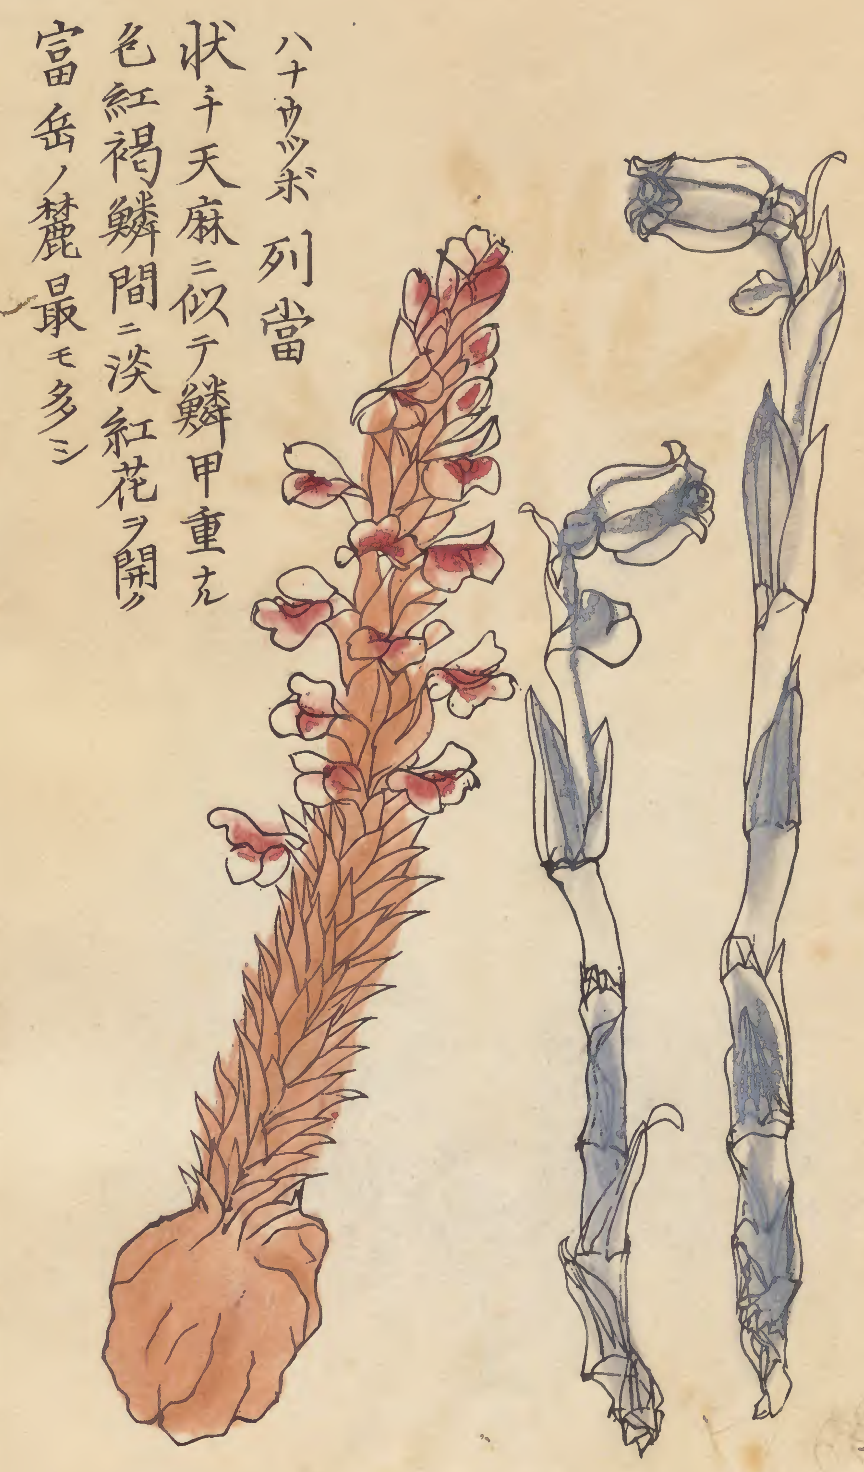 ハナウツボ 列當
状チ天麻ニ似テ鱗甲重ナル
色紅褐鱗間ニ淡紅花ヲ開ク
富岳ノ麓最モ多シ